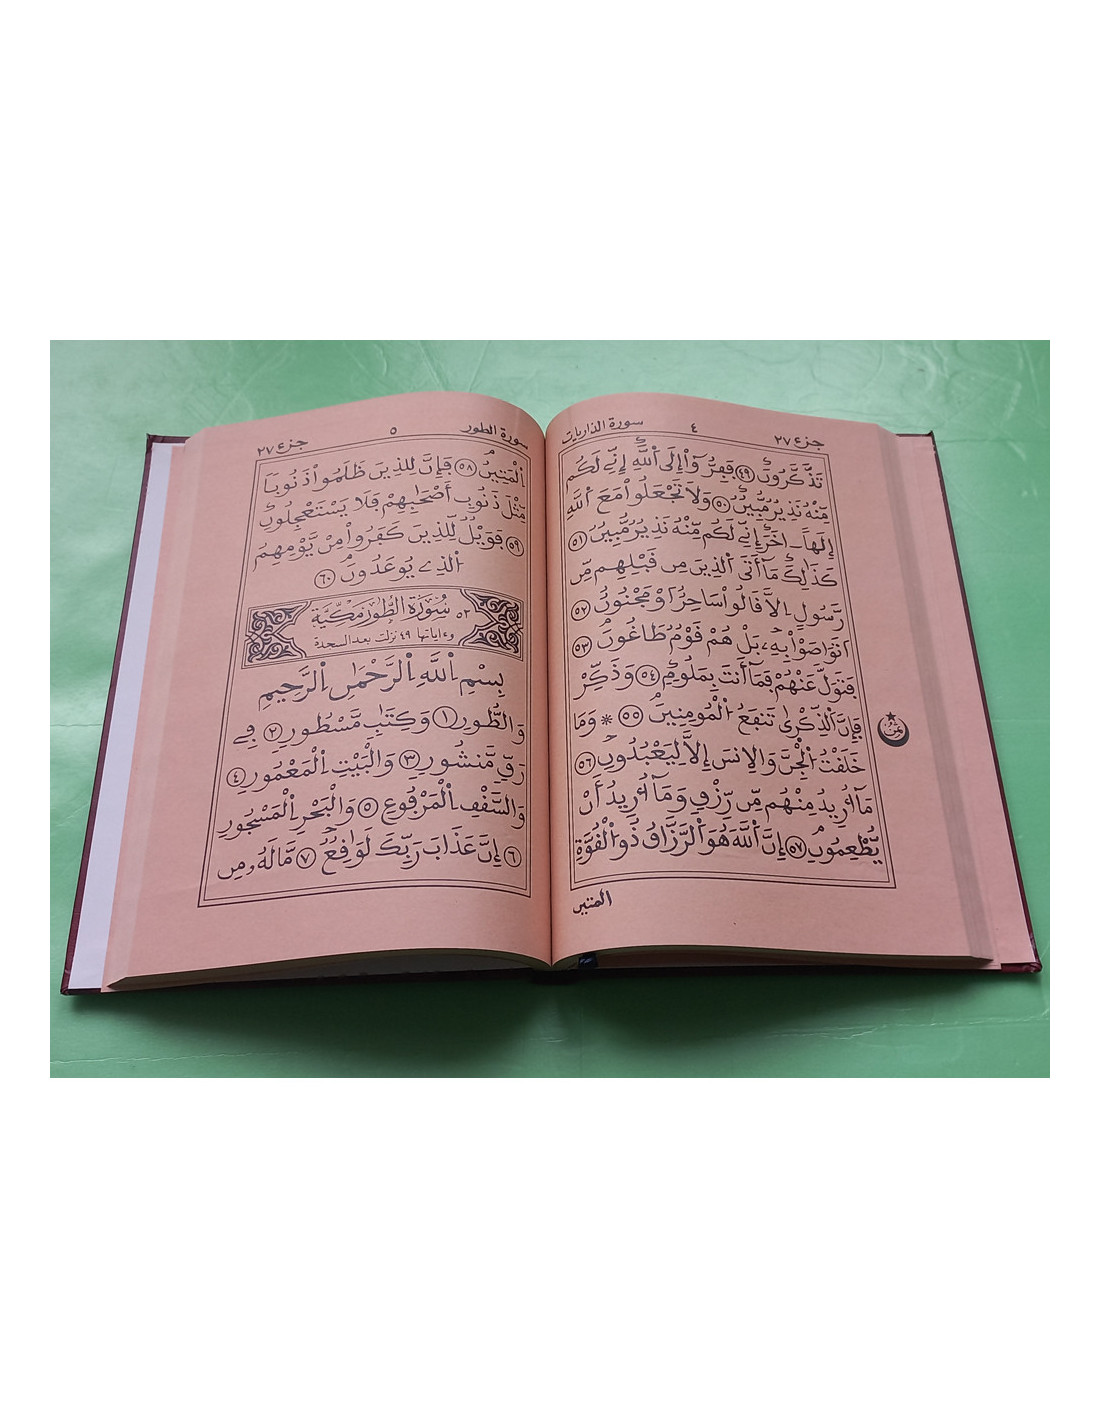 جزء ٢٧ ٤ سورة الذاريات
تَذَّكَّرُونَ ٤٩ فَفِرُّوٓاْ إِلَى اَللَّهِ إِنِّے لَكُم
مِّنْهُ نَذِيرٞ مُّبِينٞ ٥٠ وَلَا تَجْعَلُواْ مَعَ اَللَّهِ
إِلَٰهاً ـ اخَرَ إِنِّے لَكُم مِّنْهُ نَذِيرٞ مُّبِينٞ ٥١
كَذَٰلِكَ مَآ أَتَى اَلذِينَ مِن قَبْلِهِم مِّن
رَّسُولٍ اِلَّا قَالُواْ سَاحِرٌ اَوْ مَجْنُونٌ ٥٢
اَتَوَاصَوْاْ بِهِۦ بَلْ هُمْ قَوْمٞ طَاغُونَ ٥٣
فَتَوَلَّ عَنْهُمْ فَمَآ أَنتَ بِمَلُومٖ ٥٤ وَذَكِّرْ
فَإِنَّ اَلذِّكْرٜىٰ تَنفَعُ اُلْمُومِنِينَ ٥٥ * وَمَا
ثمن
خَلَقْتُ اُلْجِنَّ وَالِانسَ إِلَّا لِيَعْبُدُونِ ٥٦
مَآ أُرِيدُ مِنْهُم مِّن رِّزْقٖ وَمَآ أُرِيدُ أَنْ
يُّطْعِمُونِ ٥٧ إِنَّ اَللَّهَ هُوَ اَلرَّزَّاقُ ذُو اُلْقُوَّةِ
المتين
سورة الطور ٥ جزء ٢٧
اِلْمَتِينُ ٥٨ فَإِنَّ لِلذِينَ ظَلَمُواْ ذَنُوباٗ
مِّثْلَ ذَنُوبِ أَصْحَٰبِهِمْ فَلَا يَسْتَعْجِلُونِ
٥٩ فَوَيْلٞ لِّلذِينَ كَفَرُواْ مِنْ يَّوْمِهِمُ
اُلذِے يُوعَدُونَ ٦٠
٥٢ سُورَةُ الطُّورِ مَكِّيَّة
وءاياتها ٤٩ نزلت بعد السجدة
بِسْمِ اِللَّهِ اِلرَّحْمَٰنِ اِلرَّحِيمِ
وَالطُّورِ ١ وَكِتَٰبٖ مَّسْطُورٖ ٢ فِے
رَقّٖ مَّنشُورٖ ٣ وَالْبَيْتِ اِلْمَعْمُورِ ٤
وَالسَّقْفِ اِلْمَرْفُوعِ ٥ وَالْبَحْرِ اِلْمَسْجُورِ
٦ إِنَّ عَذَابَ رَبِّكَ لَوَٰقِعٞ ٧ مَّا لَهُۥ مِن